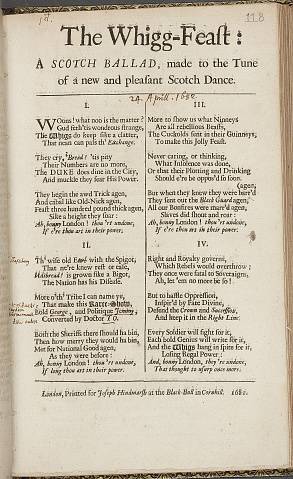 118
The Whigg-Feast:
A SCOTCH BALLAD, made to the Tune
of a new and pleasant Scotch Dance.
24. Aprill. 1682
I.
WOons! what noo is the matter?
Gud feth 'tis wondrous strange,
The Whigs do keep sike a clatter,
That nean can pass th' Exchange.
They cry, 'Bread! 'tis pity
Their Numbers are no more,
The DUKE does dine in the City,
And muckle they fear His Power.
They begin the awd Trick agen,
And cabal like Old-Nick agen,
Feast three hundred pound thick agen,
Sikes a height they fear:
Ah, bonny London! thou'rt undone,
If e're thou art in their power.
II.
Th' wise old Earl with the Spigot,
That ne're knew rest or ease,
Hilibread! is grown sike a Bigot,
The Nation has his Disease.
More o'th' Tribe I can name ye,
That make this Raree-Show,
Bold George, and Politique Jemmy,
Converted by Doctor TO.
Both the Sheriffs there should ha bin,
Then how merry they would ha bin,
Met for National Good agen,
As they were before:
Ah, bonny London! thou'rt undone,
If long thou art in their power.
III.
More to show us what Ninneys
Are all rebellious Beasts,
The Cuckolds sent in their Guinneys,
To make this Jolly Feast.
Never caring, or thinking,
What Insolence was done,
Or that their Plotting and Drinking
Should e're be oppos'd so soon.
(agen,
But when they knew they were barr'd
They sent out the Black Guard agen,
All our Bonfires were marr'd agen,
Slaves did shout and roar:
Ah, bonny London! thou'rt undone,
If e're thou art in their power.
IV.
Right and Royalty governs,
Which Rebels would overthrow;
They once were fatal to Soveraigns,
Ah, let 'em no more be so!
But to hasse Oppression,
Inspir'd by Fate Divine,
Defend the Crown and Succession,
And keep it in the Right Line.
Every Soldier will fight for it,
Each bold Genius will write for it,
And the Whigs hang in spite for it,
Losing Regal Power:
And, bonny London, they're undone,
That thought to usurp once more.
London, Printed for Joseph Hindmarsh at the Black-Bull in Cornhill. 1682.